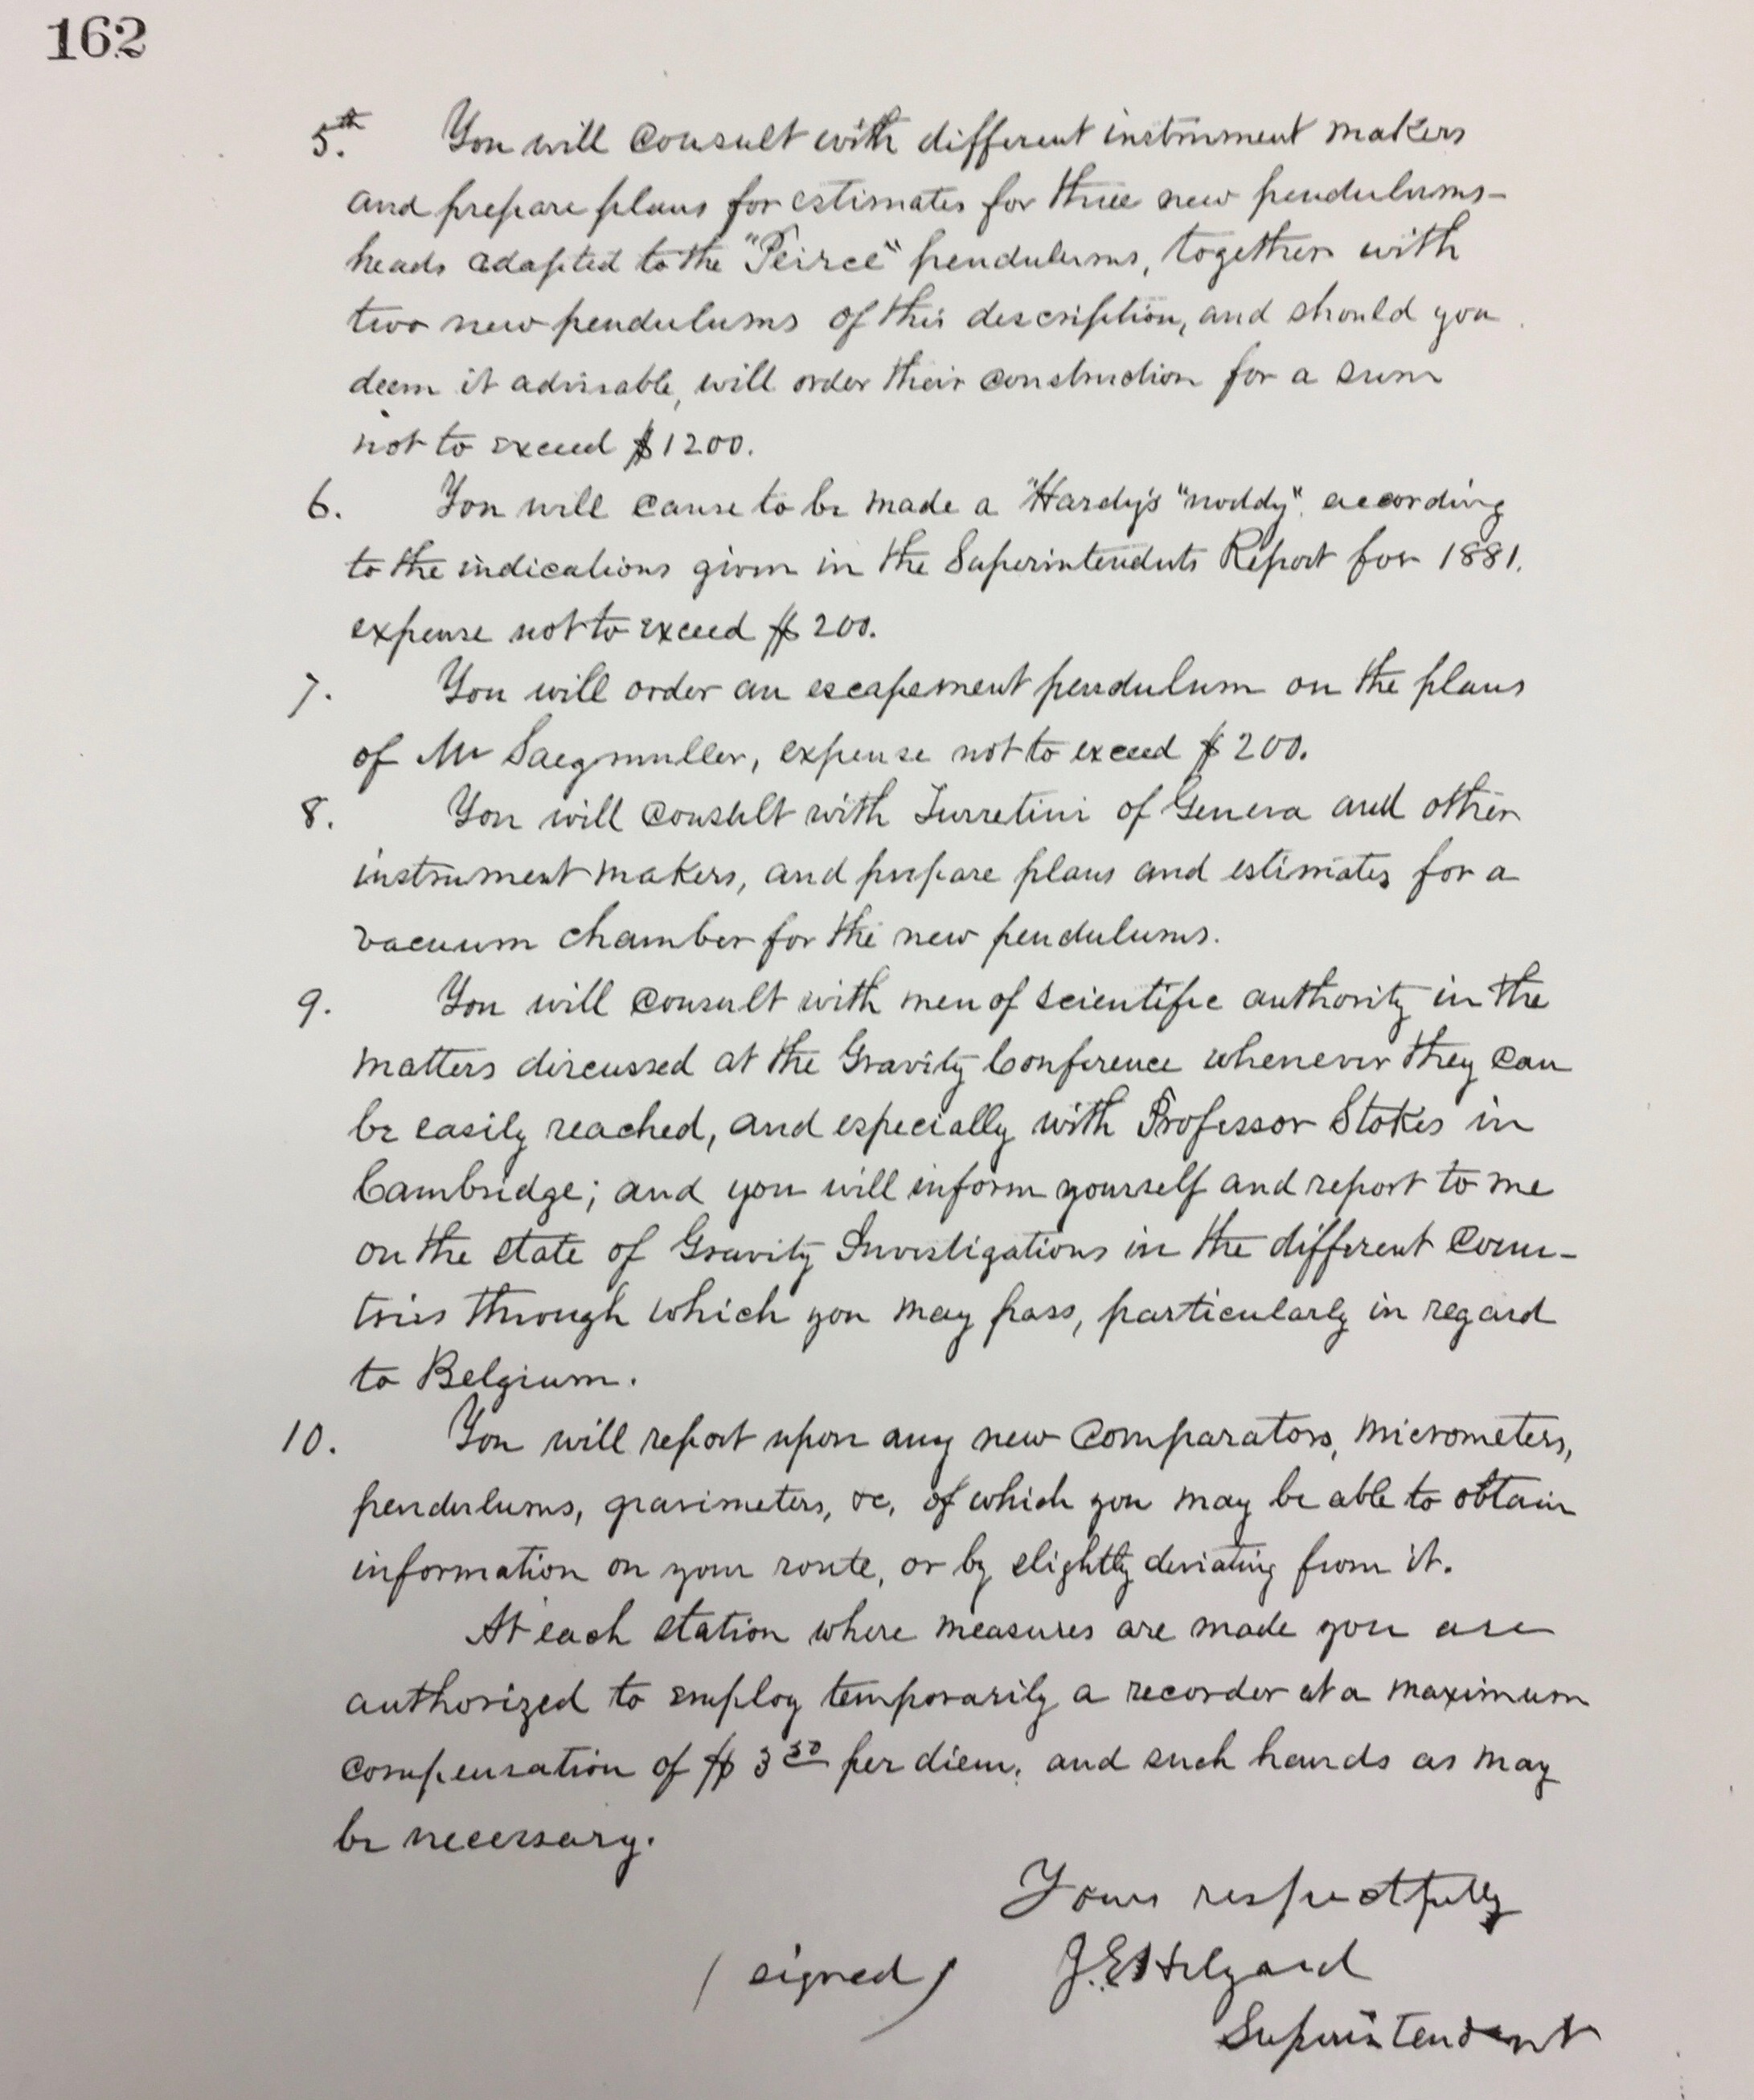 162
5.th You will consult with different instrument makers
and prepare plans for estimates for three new pendulums-
heads adapted to the "Peirce" pendulums, together with
two new pendulums of this description, and should you
deem it advisable, will order their construction for a sum
not to exceed $1200.
6. You will cause to be made a "Hardy's "noddy". according
to the indications given in the Superintendents Report for 1881.
expense not to exceed $200.
7. You will order an escapement pendulum on the plans
of Mr Saegmuller, expense not to exceed $200.
8. You will consult with Turretini of Geneva and other
instrument makers, and prepare plans and estimates for a
vacuum chamber for the new pendulums.
9. You will consult with men of scientific authority in the
matters discussed at the Gravity Conference whenever they can
be easily reached, and especially with Professor Stokes in
Cambridge; and you will inform yourself and report to me
on the state of Gravity Investigations in the different coun-
tries through which you may pass, particularly in regard
to Belgium.
10. You will report upon any new comparators, micrometers,
pendulums, gravimeters, &c, of which you may be able to obtain
information on your route, or by slightly deviating from it.
At each station where measures are made you are
authorized to employ temporarily a recorder at a maximum
compensation of $3 50 per diem, and such hands as may
be necessary.
Yours respectfully
(signed) J. E. Hilgard
Superintendent